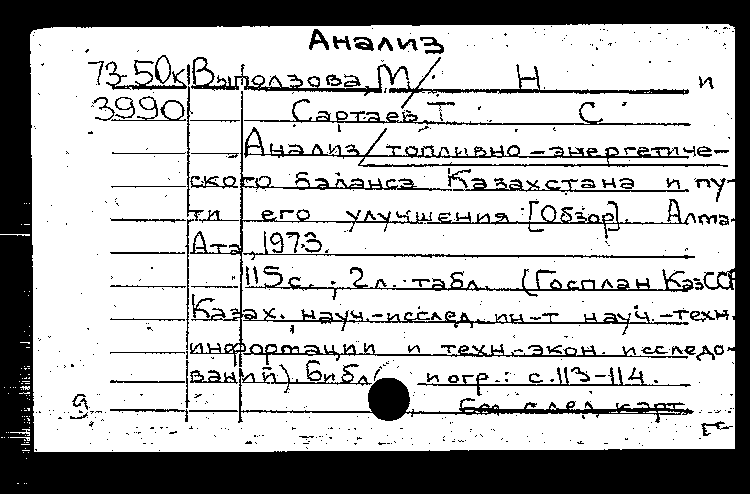 Анализ
73-50к Выползова, М Н и
3990 Сартаев, Т. С.
Анализ топливно-энергетиче-
ского баланса Казахстана и пу-
ти его улучшения [Обзор]. Алма-
Ата, 1973.
115 с.; 2 л. табл. (Госплан КазССР
Казах. науч.-исслед. ин-т науч.-техн.
информации и техн.-экон. исследо-
ваний). Библиогр.: с. 113-114.
9 См след карт